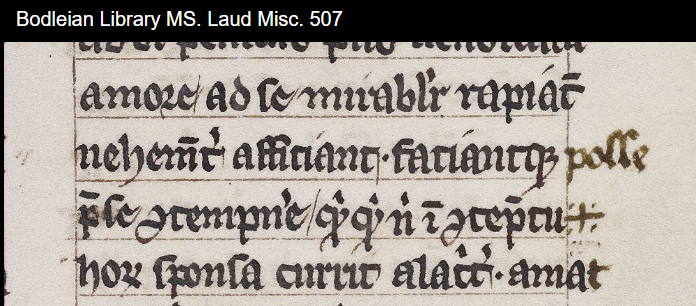 Bodleian Library MS. Laud Misc. 507
amore ad se mirabilr rapiāt
uehem̄t afficiant. faciantqꝫ posse
p̄se ꝯtempn'e q̓q̓ n̓ ī ꝯtēptu
hoꝝ sponsa currit alacit'. amat